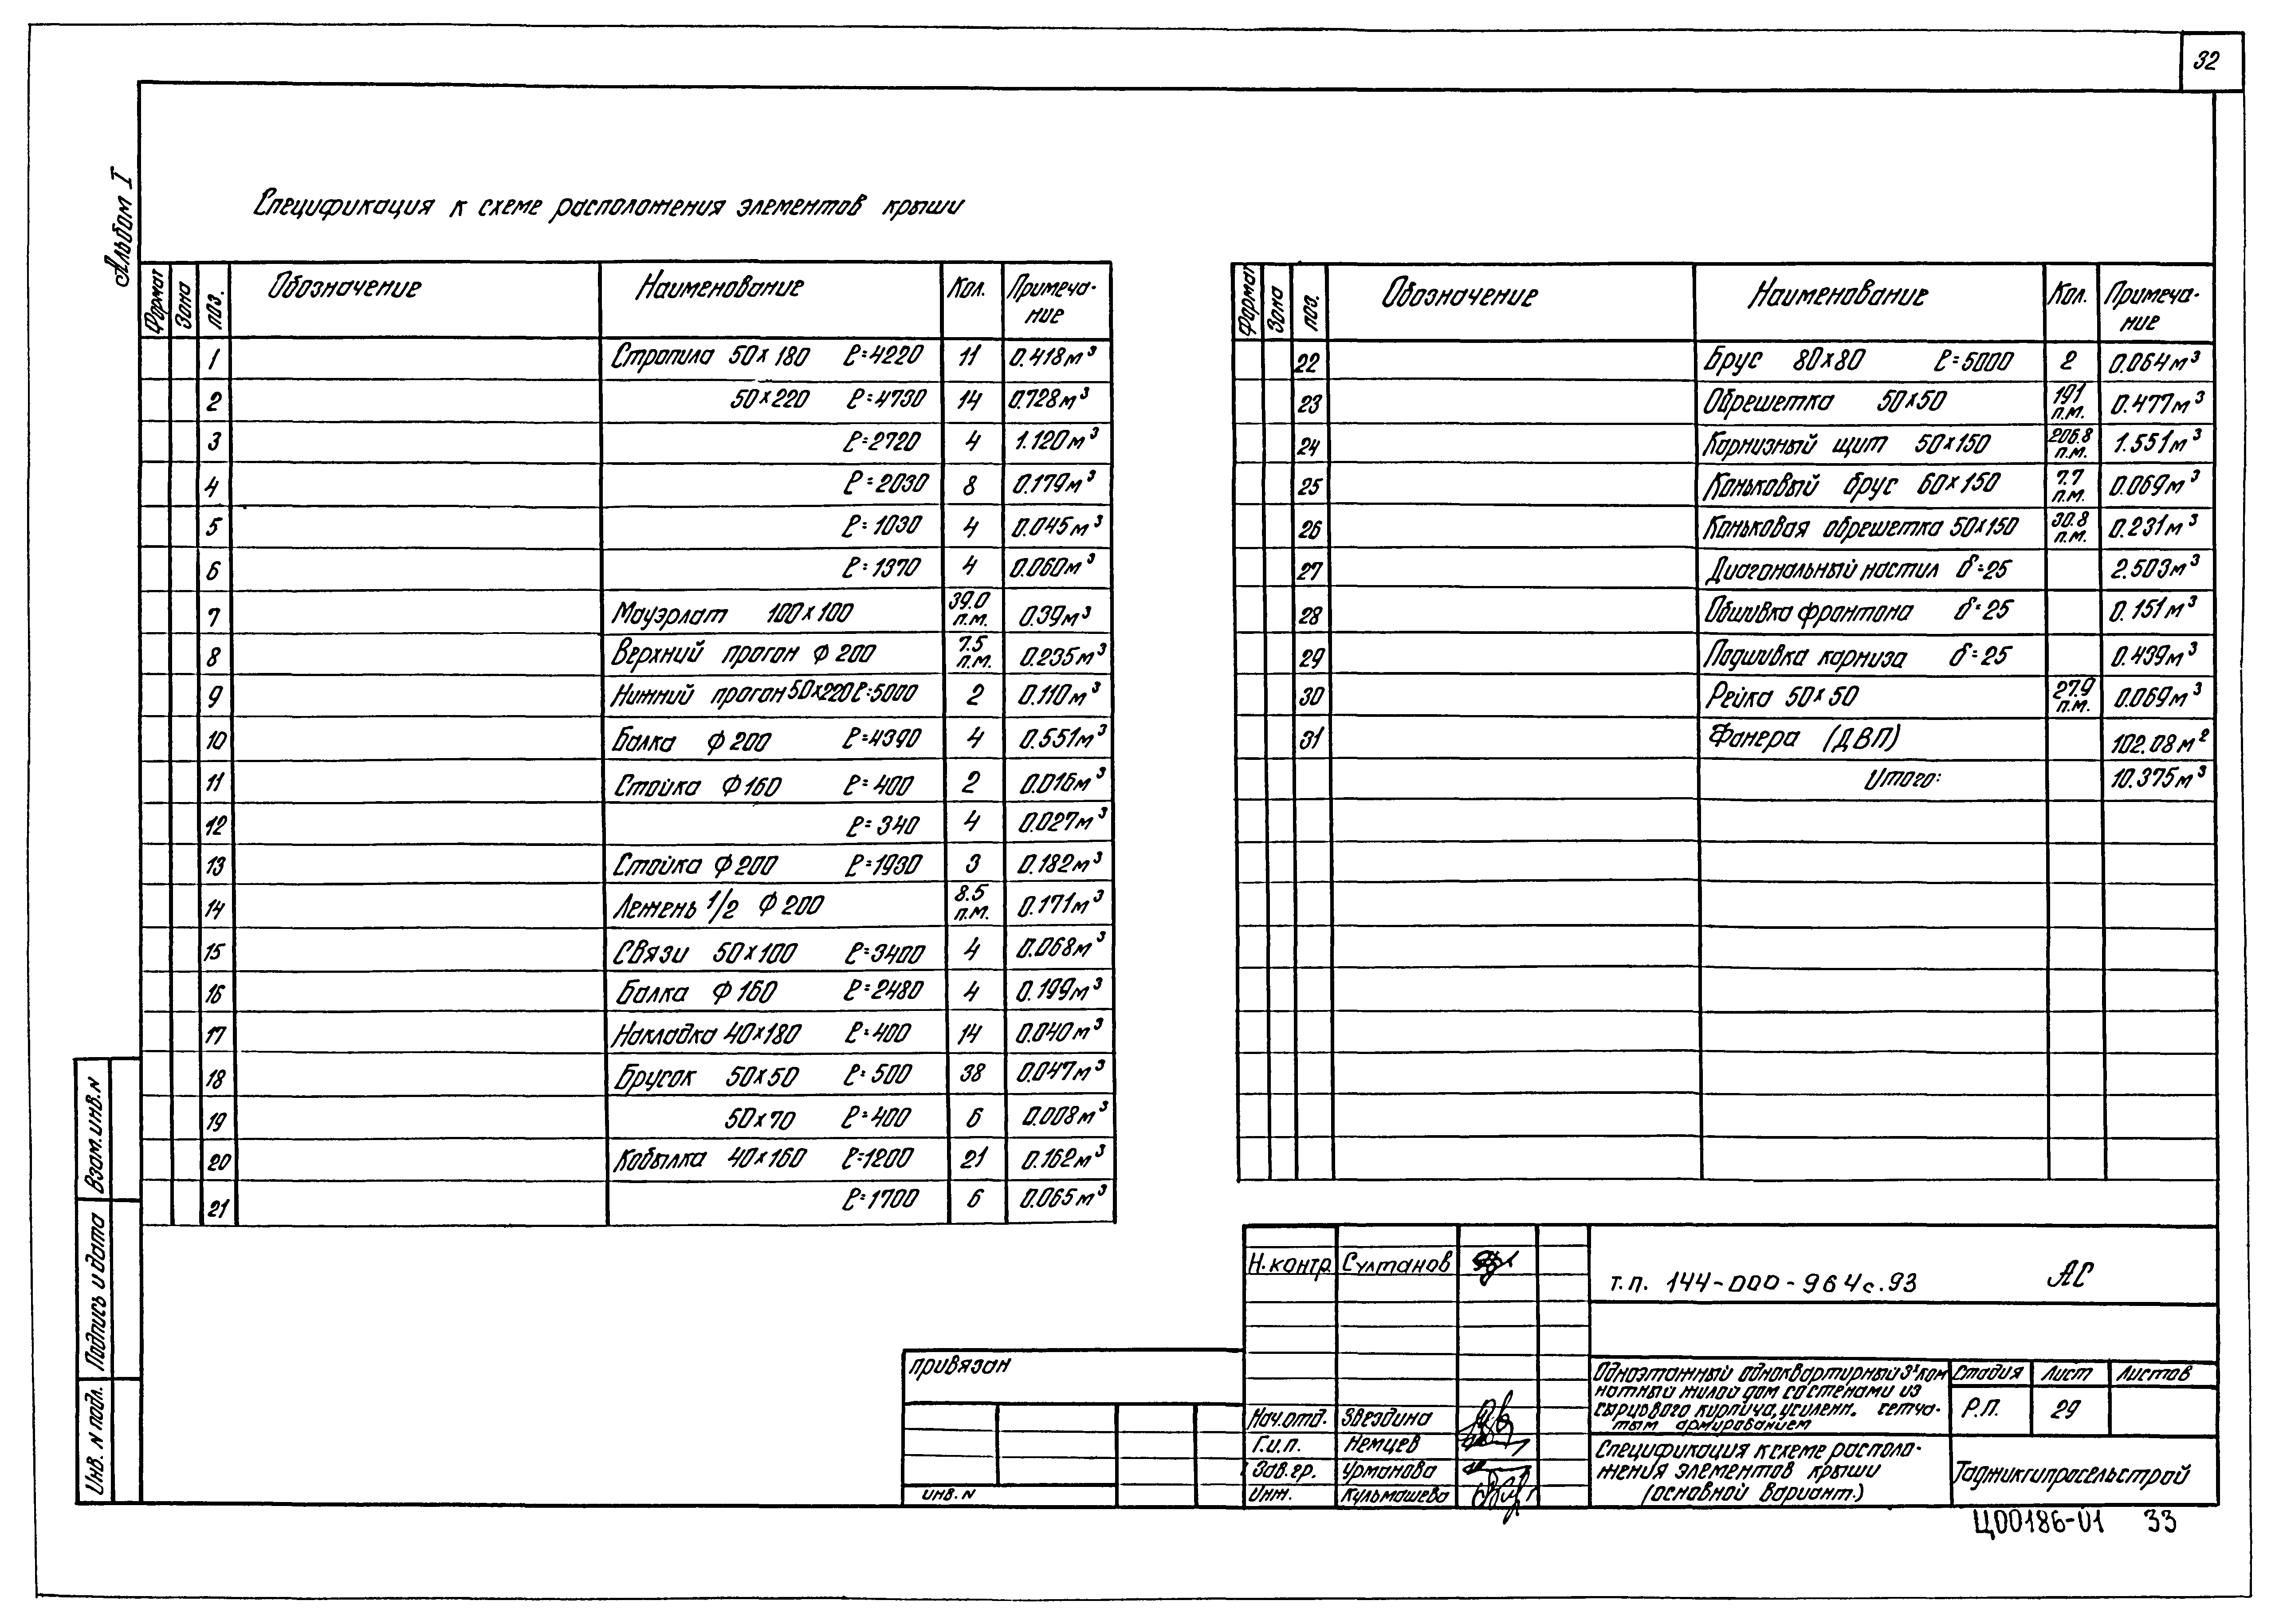 32
Альбом I
Спецификация к схеме расположения элементов крыши
Формат Зона поз. Обозначение Наименование Кол. Примеча-
ние
1 Стропила 50х180 ℓ=4220 11 0.418м³
2 50х220 ℓ=4730 14 0.728м³
3 ℓ=2720 4 1.120м³
4 ℓ=2030 8 0.179м³
5 ℓ=1030 4 0.045м³
6 ℓ=1370 4 0.060м³
7 Мауэрлат 100х100 39.0 п.м. 0.39м³
8 Верхний прогон ф200 7.5 п.м. 0.235м³
9 Нижний прогон 50х220 ℓ=5000 2 0.110м³
10 Балка ф200 ℓ=4390 4 0.551м³
11 Стойка ф160 ℓ=400 2 0.016м³
12 ℓ=340 4 0.027м³
13 Стойка ф200 ℓ=1930 3 0.182м³
14 Лежень 1/2 ф200 8.5 п.м. 0.171м³
15 Связи 50х100 ℓ=3400 4 0.068м³
16 Балка ф160 ℓ=2480 4 0.199м³
17 Накладка 40х180 ℓ=400 14 0.040м³
18 Брусок 50х50 ℓ=500 38 0.047м³
19 50х70 ℓ=400 6 0.008м³
20 Кобылка 40х160 ℓ=1200 21 0.162м³
21 ℓ=1700 6 0.065м³
Формат Зона поз. Обозначение Наименование Кол. Примеча-
ние
22 Брус 80х80 ℓ=5000 2 0.064м³
23 Обрешетка 50х50 191 п.м. 0.477м³
24 Карнизный щит 50х150 206.8 п.м. 1.551м³
25 Коньковый брус 60х150 7.7 п.м. 0.069м³
26 Коньковая обрешетка 50х150 30.8 п.м. 0.231м³
27 Диагональный настил δ=25 2.503м³
28 Обшивка фронтона δ=25 0.151м³
29 Подшивка карниза δ=25 0.439м³
30 Рейка 50х50 27.9 п.м. 0.069м³
31 Фанера (ДВП) 102.08м²
Итого: 10.375м³
Взам.инв.N
Подпись и дата
Инв. N подл.
привязан
инв. N
Н.контр Султанов
Нач.отд. Звездина
Г.и.п. Немцев
Зав.гр. Урманова
Инж. Кульмашева
т.п. 144-000-964с.93 АС
Одноэтажный одноквартирный 3ˣком
натный жилой дом со стенами из
сырцового кирпича, усиленн. сетча-
тым армированием
Стадия Лист Листов
Р.П. 29
Спецификация к схеме располо-
жения элементов крыши
(основной вариант.)
Таджикгипросельстрой
Ц00186-01 33